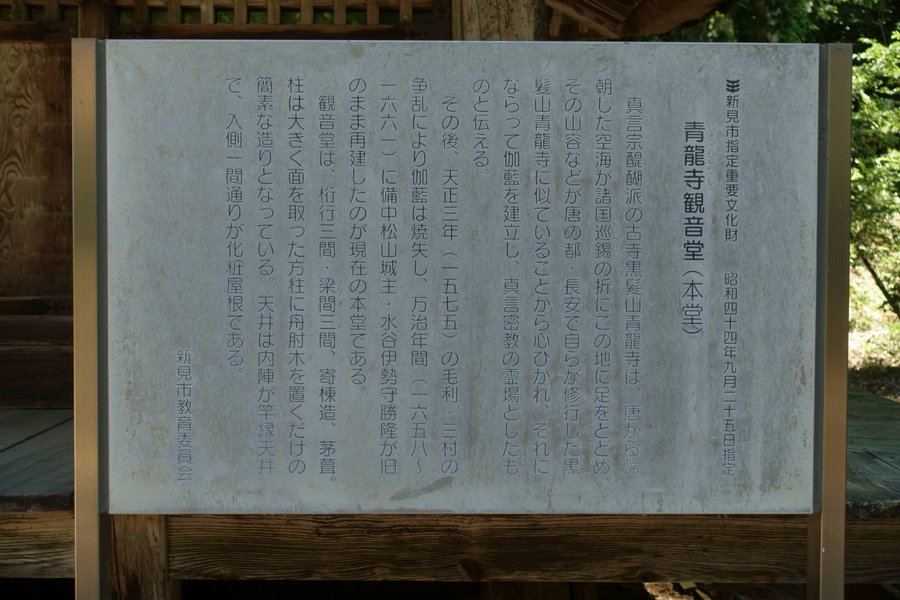 新見市指定重要文化財 昭和四十四年九月二十五日指定
青龍寺観音堂(本堂)
真言宗醍醐派の古寺黒髪山青龍寺は、唐から帰
朝した空海が諸国巡錫の折にこの地に足をとどめ
その山容などが唐の都・長安で自らが修行した黒
髪山青龍寺に似ていることから心ひかれ、それに
ならって伽藍を建立し、真言密教の霊場としたも
のと伝える。
その後、天正三年(一五七五)の毛利・三村の
争乱により伽藍は焼失し、万治年間(一六五八〜
一六六一)に備中松山城主・水谷伊勢守勝隆が旧
のまま再建したのが現在の本堂である。
観音堂は、桁行三間・梁間三間、寄棟造、茅葺。
柱は大きく面を取った方柱に舟肘木を置くだけの
簡素な造りとなっている。天井は内陣が竿縁天井
で、入側一間通りが化粧屋根である。
新見市教育委員会